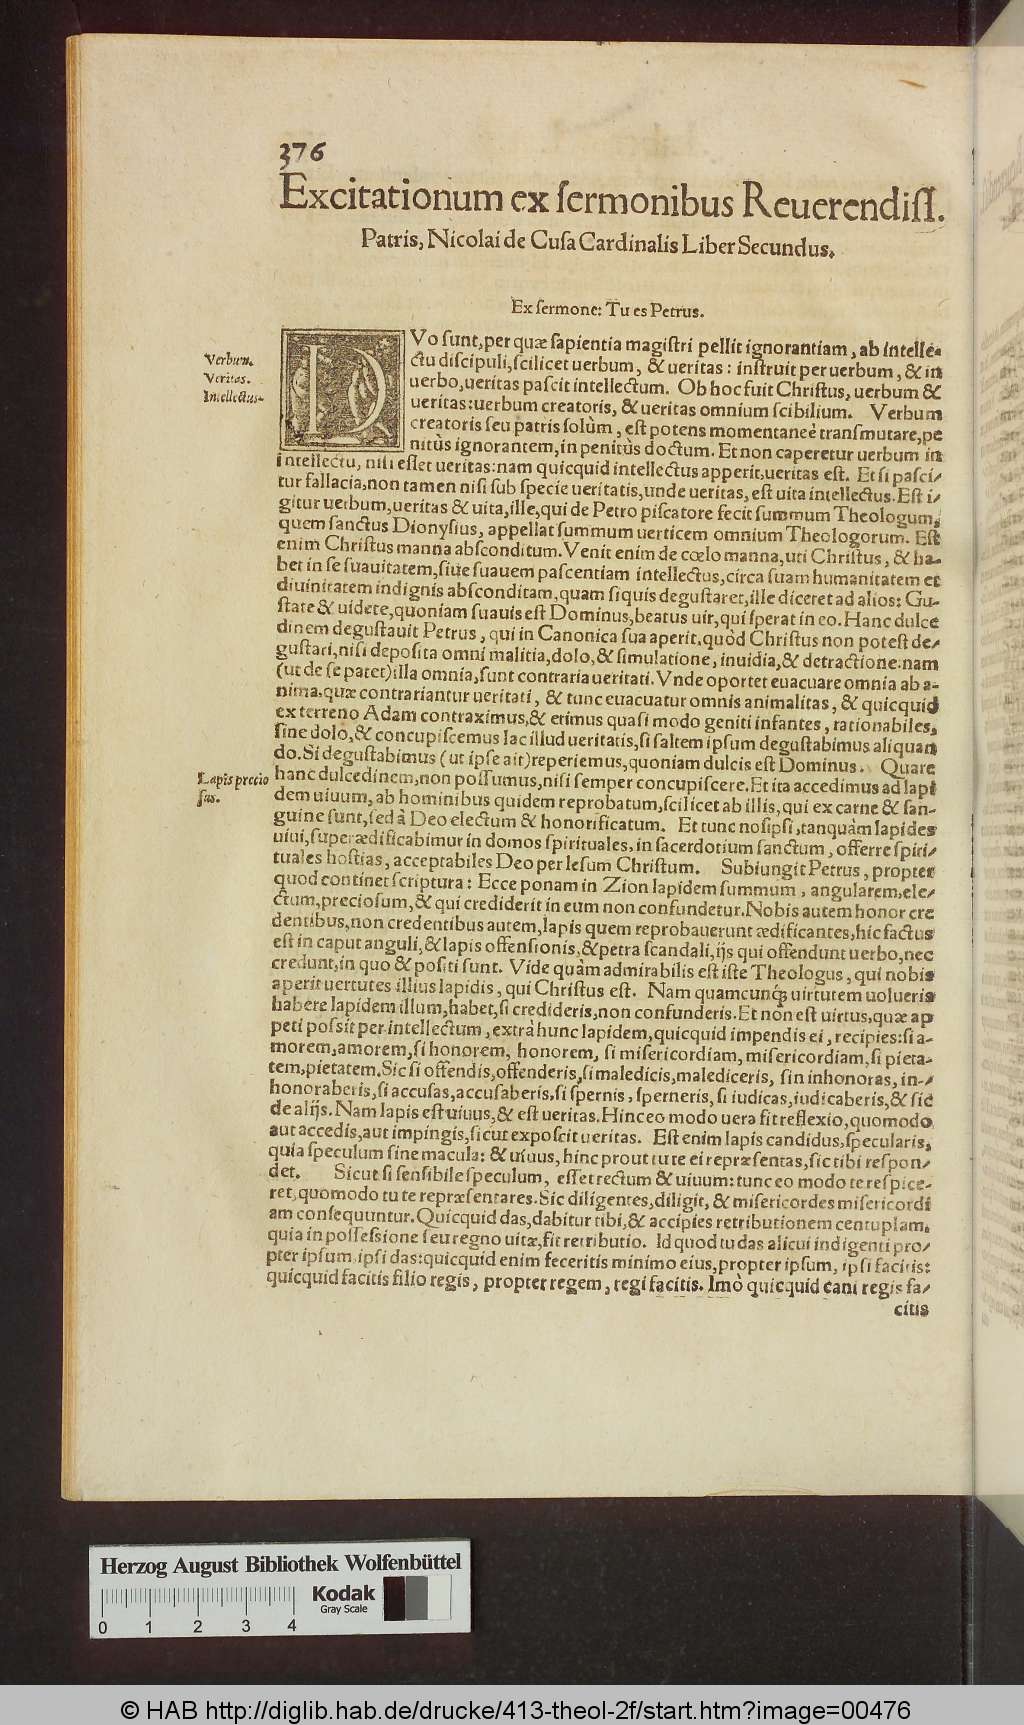 376
Excitationum ex ſermonibus Reuerendiſſ.
Patris, Nicolai de Cuſa Cardinalis Liber Secundus.
Ex ſermone: Tu es Petrus.
Verbum.
Veritas.
Intellectus.
DVo ſunt, per quæ ſapientia magiſtri pellit ignorantiam, ab intelle-
ctu diſcipuli, ſcilicet uerbum, & ueritas: inſtruit per uerbum, & in
uerbo, ueritas paſcit intellectum. Ob hoc fuit Chriſtus, uerbum &
ueritas: uerbum creatoris, & ueritas omnium ſcibilium. Verbum
creatoris ſeu patris ſolùm, eſt potens momentaneè tranſmutare, pe
nitùs ignorantem, in penitùs doctum. Et non caperetur uerbum in
intellectu, niſi eſſet ueritas: nam quicquid intellectus apperit, ueritas eſt. Et ſi paſci-
tur fallacia, non tamen niſi ſub ſpecie ueritatis, unde ueritas, eſt uita intellectus. Eſt i-
gitur uerbum, ueritas & uita, ille, qui de Petro piſcatore fecit ſummum Theologum,
quem ſanctus Dionyſius, appellat ſummum uerticem omnium Theologorum. Eſt
enim Chriſtus manna abſconditum. Venit enim de cœlo manna, uti Chriſtus, & ha-
bet in ſe ſuauitatem, ſiue ſuauem paſcentiam intellectus, circa ſuam humanitatem et
diuinitatem indignis abſconditam, quam ſi quis deguſtaret, ille diceret ad alios: Gu-
ſtate & uidete, quoniam ſuauis eſt Dominus, beatus uir, qui ſperat in eo. Hanc dulce
dinem deguſtauit Petrus, qui in Canonica ſua aperit, quòd Chriſtus non poteſt de-
guſtari, niſi depoſita omni malitia, dolo, & ſimulatione, inuidia, & detractione: nam
(ut de ſe patet) illa omnia, ſunt contraria ueritati. Vnde oportet euacuare omnia ab a-
nima, quæ contrariantur ueritati, & tunc euacuatur omnis animalitas, & quicquid
ex terreno Adam contraximus, & erimus quaſi modo geniti infantes, rationabiles,
ſine dolo, & concupiſcemus lac illud ueritatis, ſi ſaltem ipſum deguſtabimus aliquan
do. Si deguſtabimus (ut ipſe ait) reperiemus, quoniam dulcis eſt Dominus. Quare
Lapis precio
ſus.
hanc dulcedinem, non poſſumus, niſi ſemper concupiſcere. Et ita accedimus ad lapi
dem uiuum, ab hominibus quidem reprobatum, ſcilicet ab illis, qui ex carne & ſan-
guine ſunt, ſed à Deo electum & honorificatum. Et tunc nos ipſi, tanquàm lapides
uiui, ſuperædificabimur in domos ſpirituales, in ſacerdotium ſanctum, offerre ſpiri-
tuales hoſtias, acceptabiles Deo per Ieſum Chriſtum. Subiungit Petrus, propter
quod continet ſcriptura: Ecce ponam in Zion lapidem ſummum, angularem, ele-
ctum, precioſum, & qui crediderit in eum non confundetur. Nobis autem honor cre
dentibus, non credentibus autem, lapis quem reprobauerunt ædificantes, hic factus
eſt in caput anguli, & lapis offenſionis, & petra ſcandali, ijs qui offendunt uerbo, nec
credunt, in quo & poſiti ſunt. Vide quàm admirabilis eſt iſte Theologus, qui nobis
aperit uertutes illius lapidis, qui Chriſtus eſt. Nam quamcunq; uirtutem uolueris
habere lapidem illum, habet, ſi credideris, non confunderis. Et non eſt uirtus, quæ ap
peti poſsit per intellectum, extrà hunc lapidem, quicquid impendis ei, recipies: ſi a-
morem, amorem, ſi honorem, honorem, ſi miſericordiam, miſericordiam, ſi pieta-
tem, pietatem. Sic ſi offendis, offenderis, ſi maledicis, malediceris, ſin inhonoras, in-
honoraberis, ſi accuſas, accuſaberis, ſi ſpernis, ſperneris, ſi iudicas, iudicaberis, & ſic
de alijs. Nam lapis eſt uiuus, & eſt ueritas. Hinc eo modo uera fit reflexio, quomodo
aut accedis, aut impingis, ſicut expoſcit ueritas. Eſt enim lapis candidus, ſpecularis,
quia ſpeculum ſine macula: & uiuus, hinc prout tu te ei repræſentas, ſic tibi reſpon-
det. Sicut ſi ſenſibile ſpeculum, eſſet rectum & uiuum: tunc eo modo te reſpice-
ret, quomodo tu te repræſentares. Sic diligentes, diligit, & miſericordes miſericordi
am conſequuntur. Quicquid das, dabitur tibi, & accipies retributionem centuplam,
quia in poſſeſsione ſeu regno uitæ, fit retributio. Id quod tu das alicui indigenti pro-
pter ipſum, ipſi das: quicquid enim feceritis minimo eius, propter ipſum, ipſi facitis:
quicquid facitis filio regis, propter regem, regi facitis. Imò quicquid cani regis fa-
citis
Herzog August Bibliothek Wolfenbüttel
Kodak
Gray Scale
0 1 2 3 4
© HAB http://diglib.hab.de/drucke/413-theol-2f/start.htm?image=00476